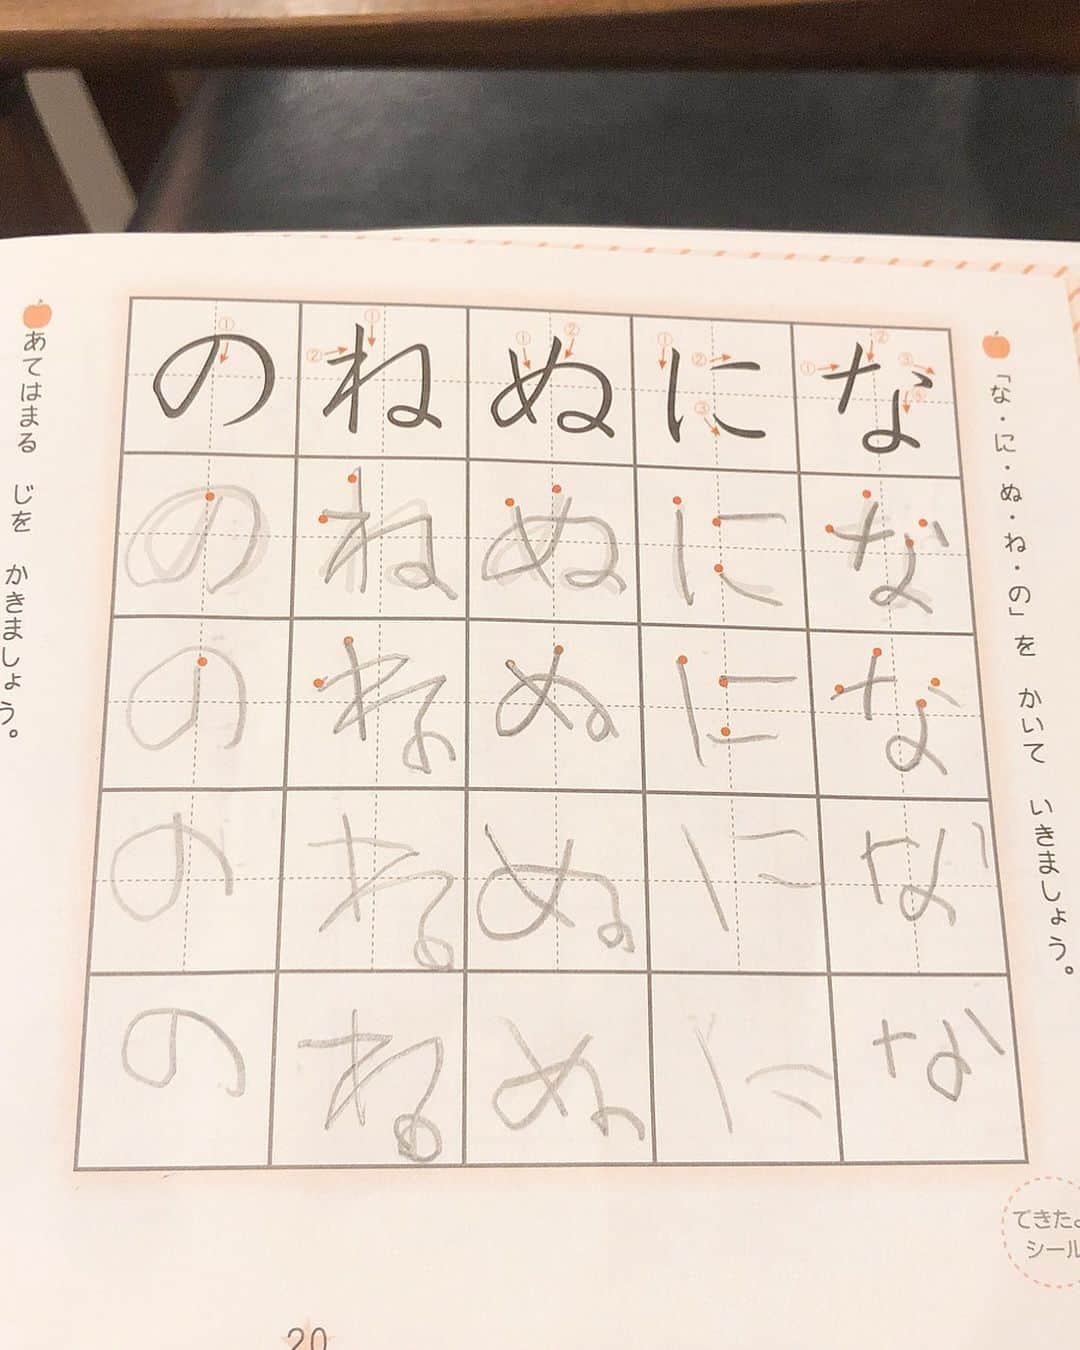 「な・に・ぬ・ね・の」を かいて いきましょう。
な な な な な
に に に に に
ぬ ぬ ぬ ぬ ぬ
ね ね ね ね ね
の の の の の
あてはまる じを かきましょう。
できたよ
シール
20